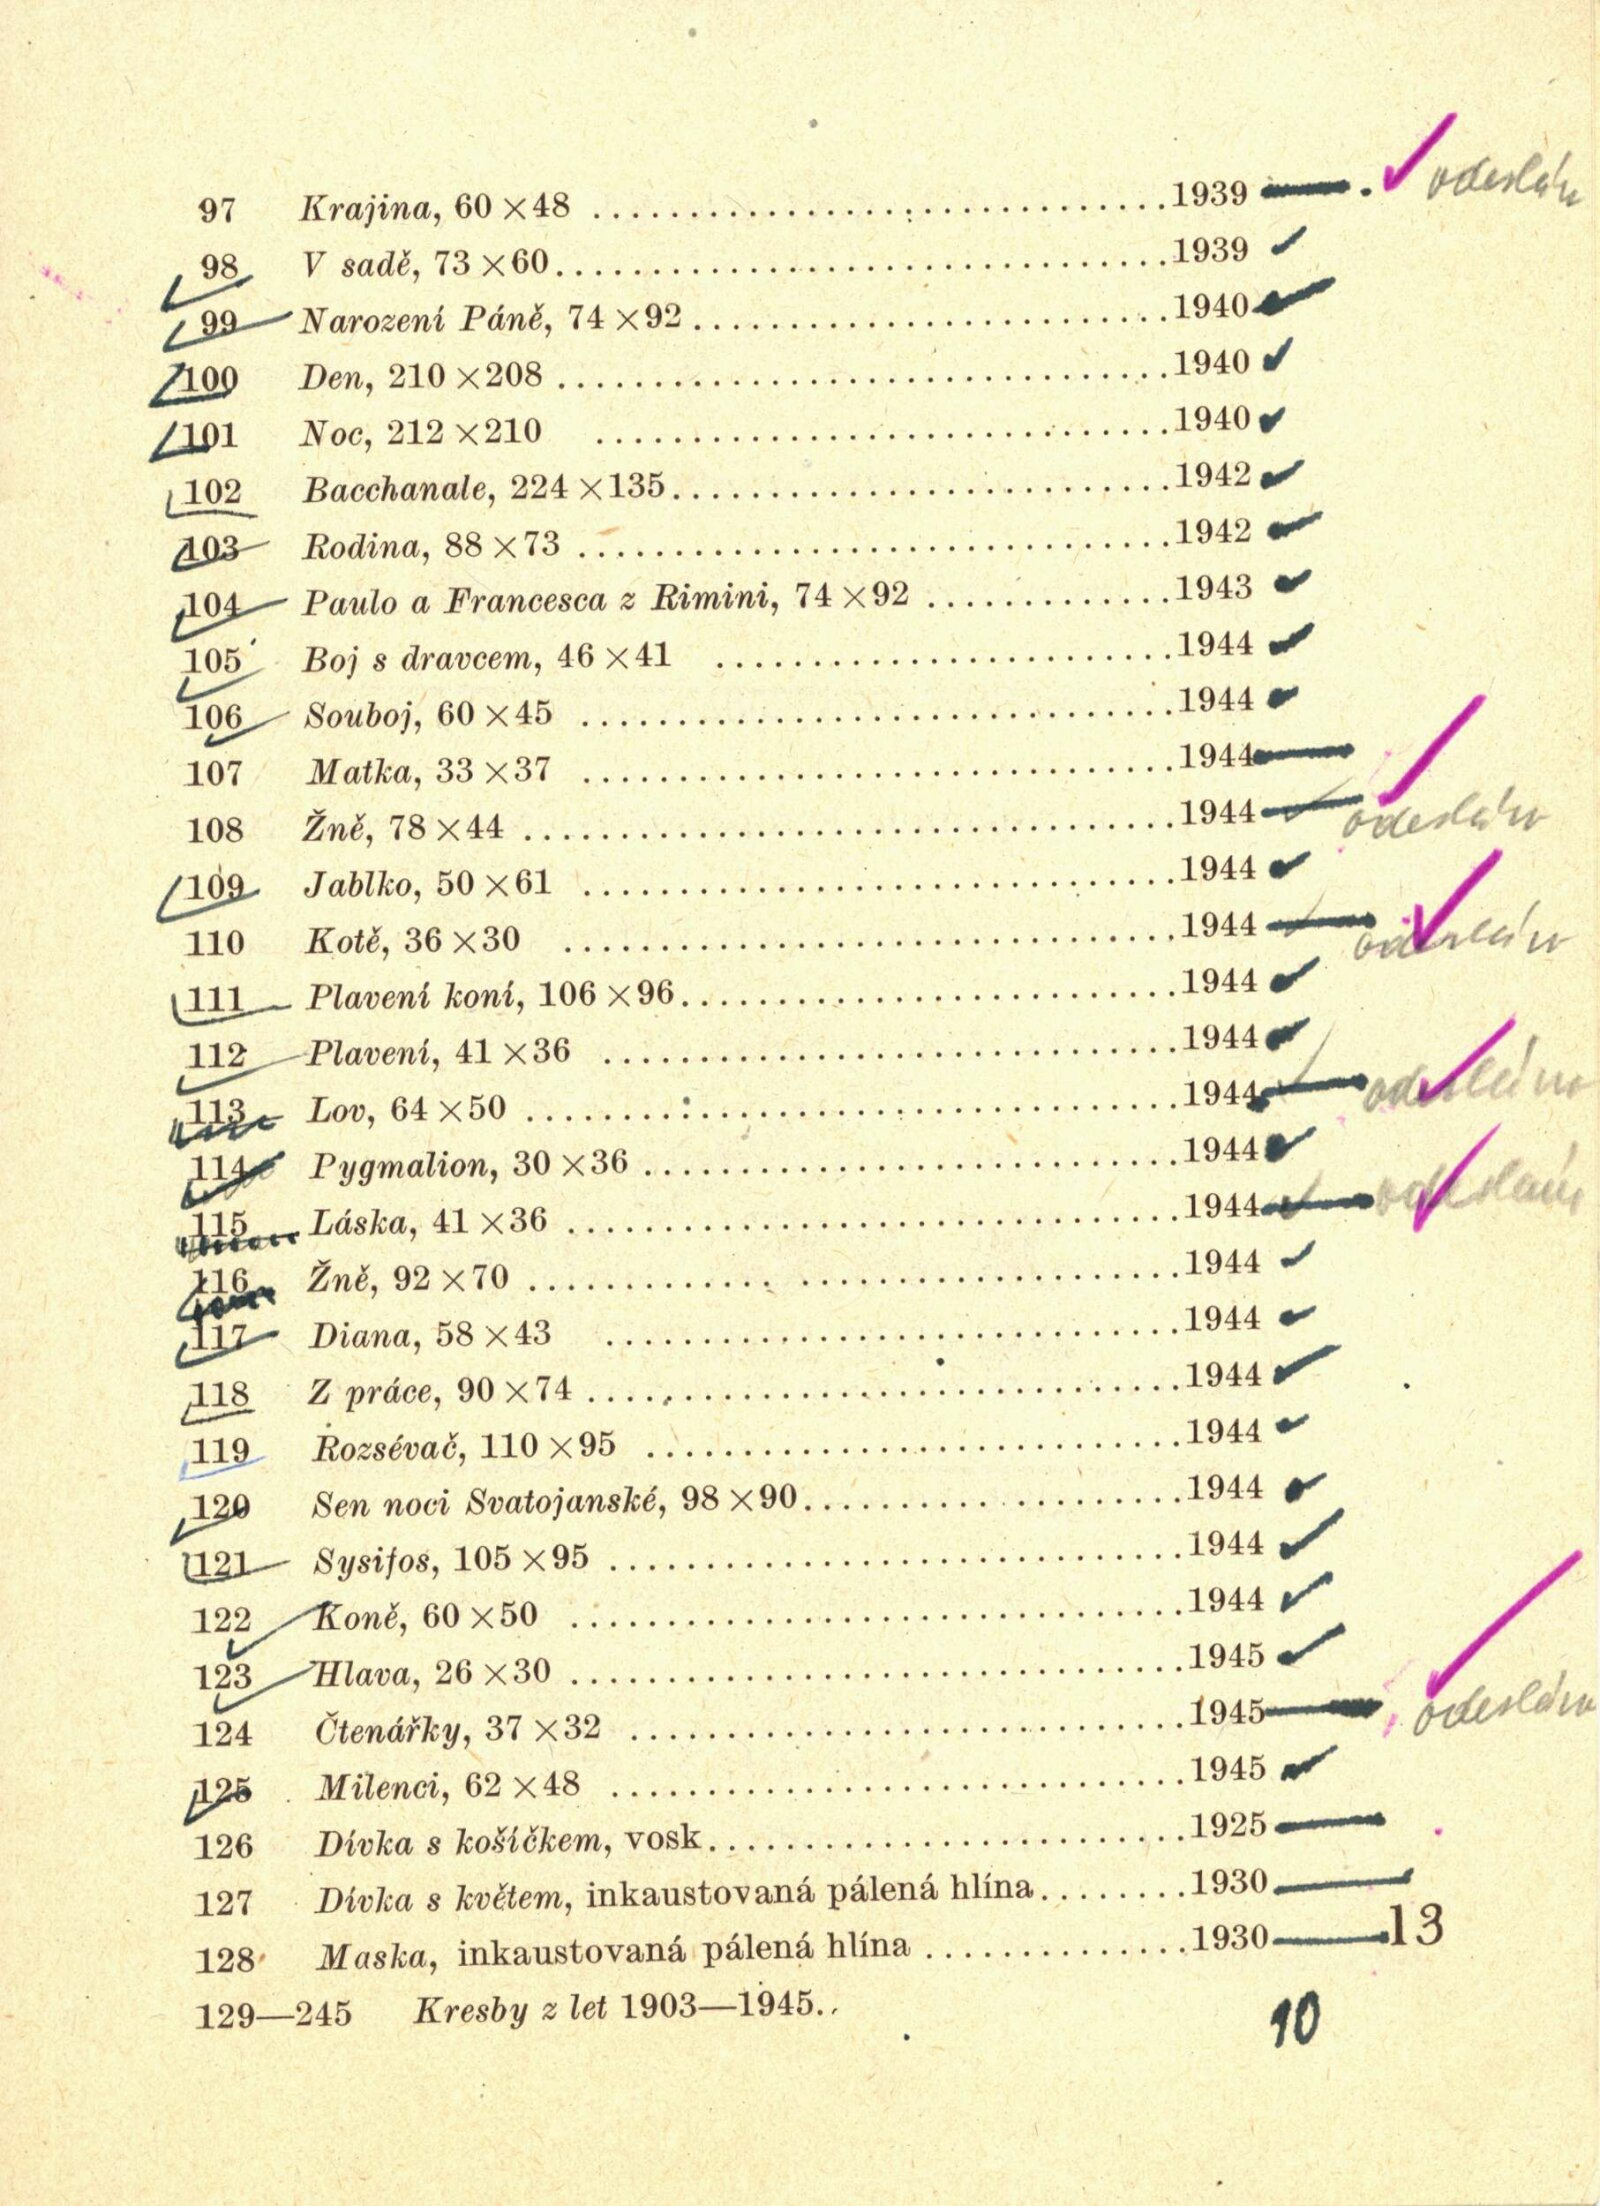 97 Krajina, 60×48 ..... 1939 — . ✓ odeslán
98 V sadě, 73×60 ..... 1939 ✓
99 Narození Páně, 74×92 ..... 1940 ✓
100 Den, 210×208 ..... 1940 ✓
101 Noc, 212×210 ..... 1940 ✓
102 Bacchanale, 224×135 ..... 1942 ✓
103 Rodina, 88×73 ..... 1942 ✓
104 Paulo a Francesca z Rimini, 74×92 ..... 1943 ✓
105 Boj s dravcem, 46×41 ..... 1944 ✓
106 Souboj, 60×45 ..... 1944 ✓
107 Matka, 33×37 ..... 1944 —
108 Žně, 78×44 ..... 1944 — ✓ odeslán
109 Jablko, 50×61 ..... 1944 ✓
110 Kotě, 36×30 ..... 1944 — ✓ odeslán
111 Plavení koní, 106×96 ..... 1944 ✓
112 Plavení, 41×36 ..... 1944 ✓
113 Lov, 64×50 ..... 1944 — ✓ odeslán
114 Pygmalion, 30×36 ..... 1944 ✓
115 Láska, 41×36 ..... 1944 — ✓ odeslán
116 Žně, 92×70 ..... 1944 ✓
117 Diana, 58×43 ..... 1944 ✓
118 Z práce, 90×74 ..... 1944 ✓
119 Rozsévač, 110×95 ..... 1944 ✓
120 Sen noci Svatojanské, 98×90 ..... 1944 ✓
121 Sysifos, 105×95 ..... 1944 ✓
122 Koně, 60×50 ..... 1944 ✓
123 Hlava, 26×30 ..... 1945 ✓
124 Čtenářky, 37×32 ..... 1945 — ✓ odeslán
125 Milenci, 62×48 ..... 1945 ✓
126 Dívka s košíčkem, vosk ..... 1925 —
127 Dívka s květem, inkaustovaná pálená hlína ..... 1930 —
128 Maska, inkaustovaná pálená hlína ..... 1930 — 13
129—245 Kresby z let 1903—1945..
10